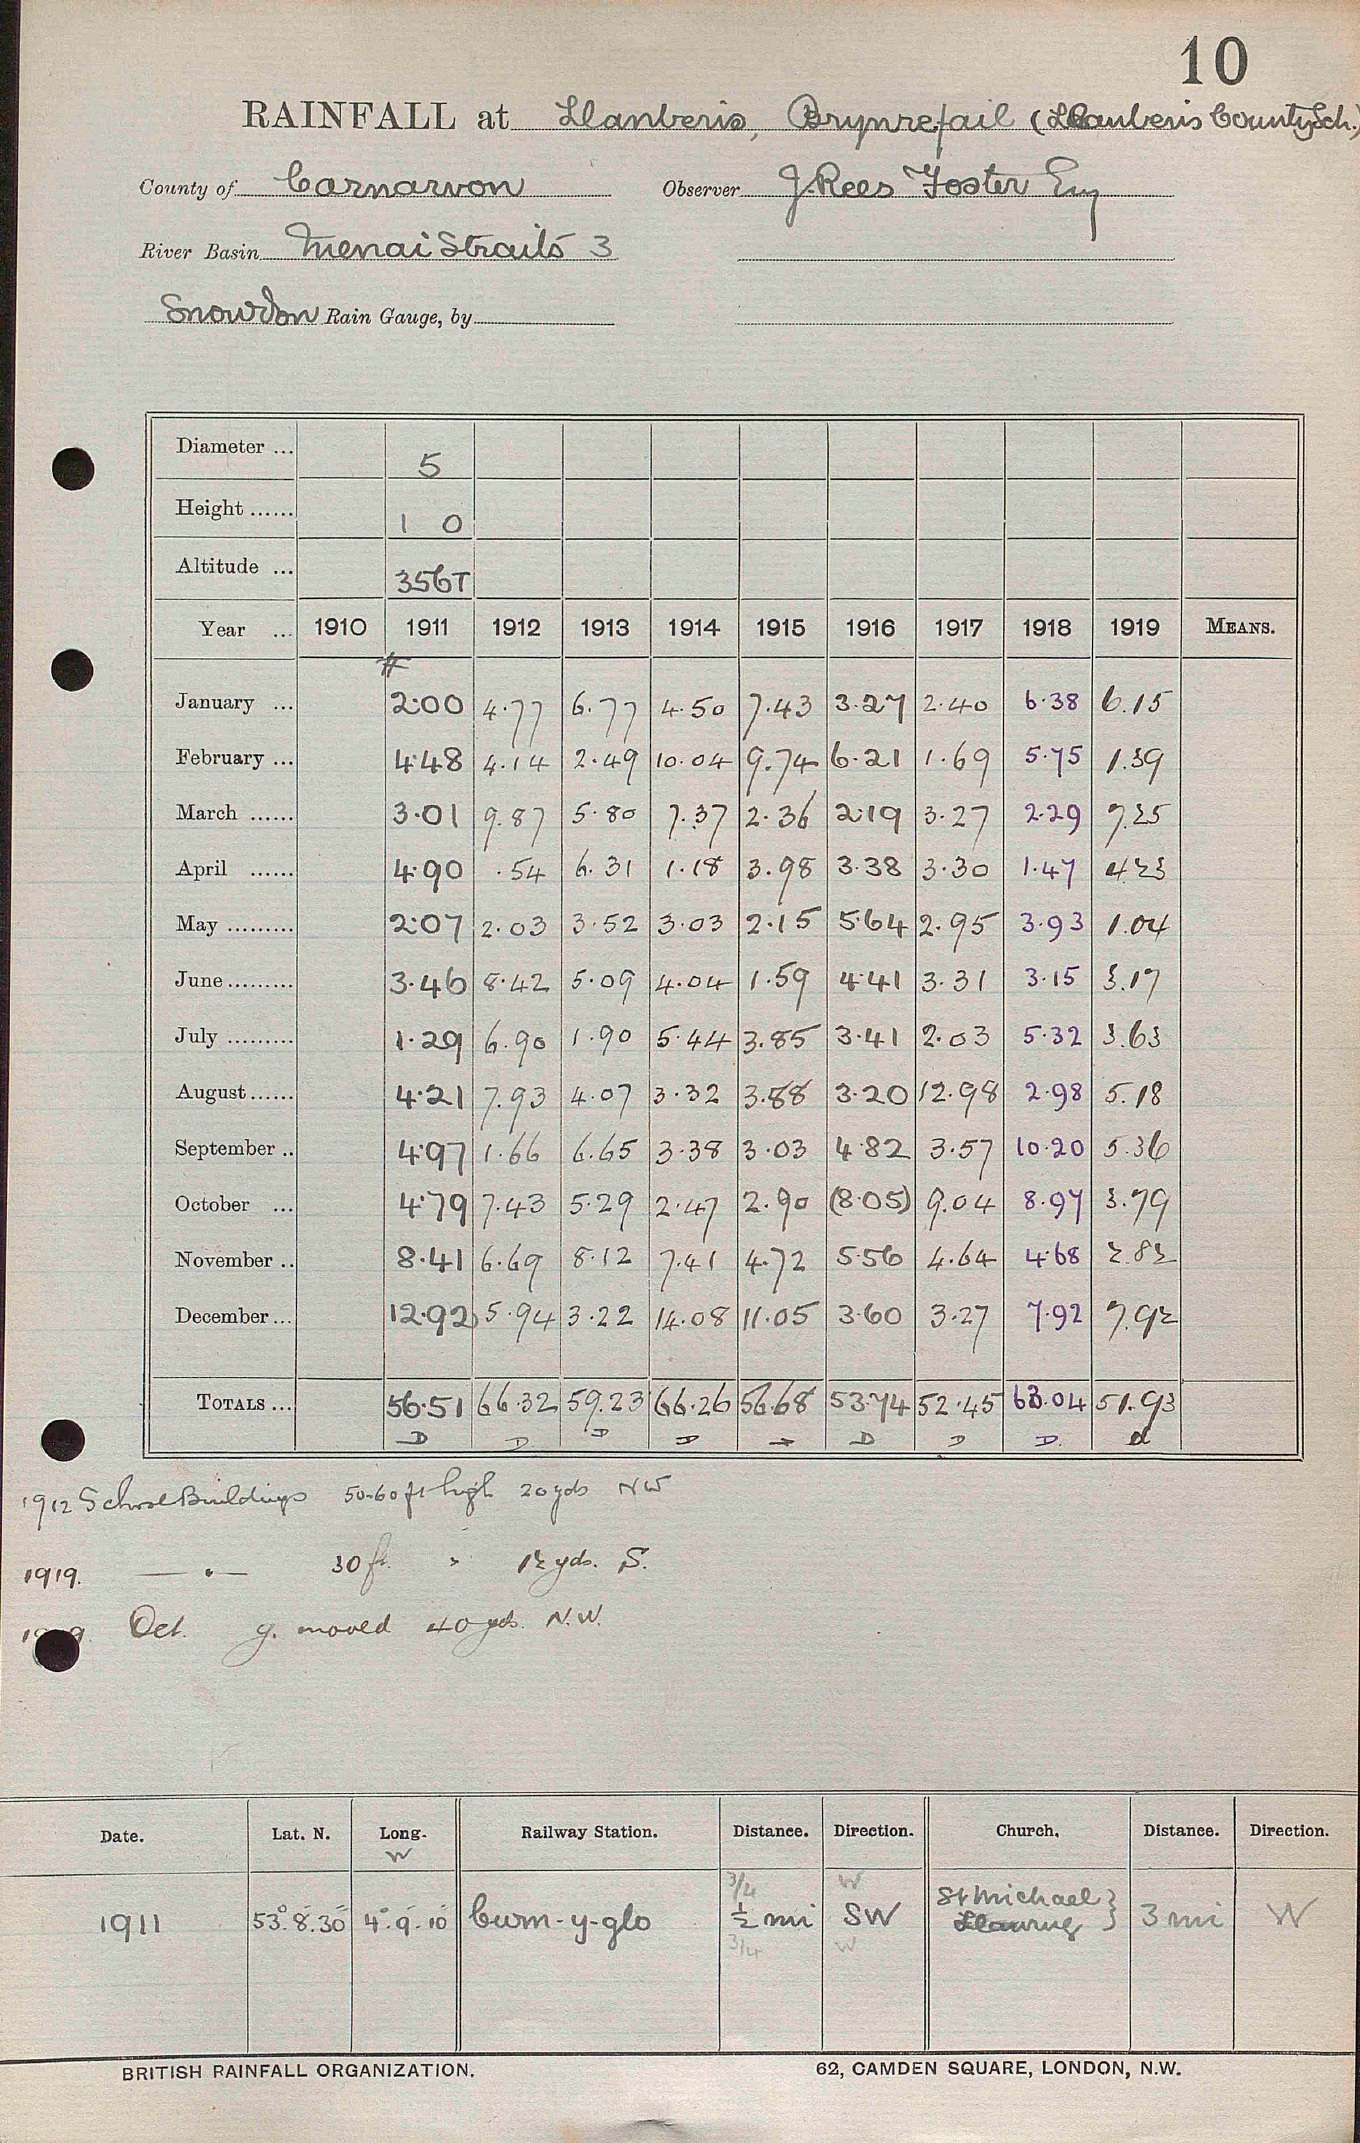 10
RAINFALL at Llanberis, Brynrefail (Llanberis County Sch.)
County of Carnarvon Observer J. Rees Foster Esq
River Basin Menai Straits 3
Snowdon Rain Gauge, by
Diameter ... 5
Height ...... 1 0
Altitude ... 356T
Year ... 1910 1911 1912 1913 1914 1915 1916 1917 1918 1919 MEANS.
#
January ... 2.00 4.77 6.77 4.50 7.43 3.27 2.40 6.38 6.15
February ... 4.48 4.14 2.49 10.04 9.74 6.21 1.69 5.75 1.39
March ...... 3.01 9.87 5.80 7.37 2.36 2.19 3.27 2.29 7.25
April ...... 4.90 .54 6.31 1.18 3.98 3.38 3.30 1.47 4.23
May ......... 2.07 2.03 3.52 3.03 2.15 5.64 2.95 3.93 1.04
June ......... 3.46 8.42 5.09 4.04 1.59 4.41 3.31 3.15 3.17
July ......... 1.29 6.90 1.90 5.44 3.85 3.41 2.03 5.32 3.63
August ...... 4.21 7.93 4.07 3.32 3.88 3.20 12.98 2.98 5.18
September .. 4.97 1.66 6.65 3.38 3.03 4.82 3.57 10.20 5.36
October ... 4.79 7.43 5.29 2.47 2.90 (8.05) 9.04 8.97 3.79
November .. 8.41 6.69 8.12 7.41 4.72 5.56 4.64 4.68 2.82
December ... 12.92 5.94 3.22 14.08 11.05 3.60 3.27 7.92 7.92
TOTALS ... 56.51 66.32 59.23 66.26 56.68 53.74 52.45 63.04 51.93
D D D D D D D d
1912 School Buildings 50-60 ft high 20 yds NW
1919. — " — 30 ft. " 12 yds. S.
Oct. g. moved 40 yds. N.W.
Date. Lat. N. Long. W Railway Station. Distance. Direction. Church. Distance. Direction.
3/4 W
1911 53° 8' 30" 4° 9' 10" Cwm-y-glo 1/2 mi SW St Michael Llanrug } 3 mi W
3/4 W
BRITISH RAINFALL ORGANIZATION. 62, CAMDEN SQUARE, LONDON, N.W.